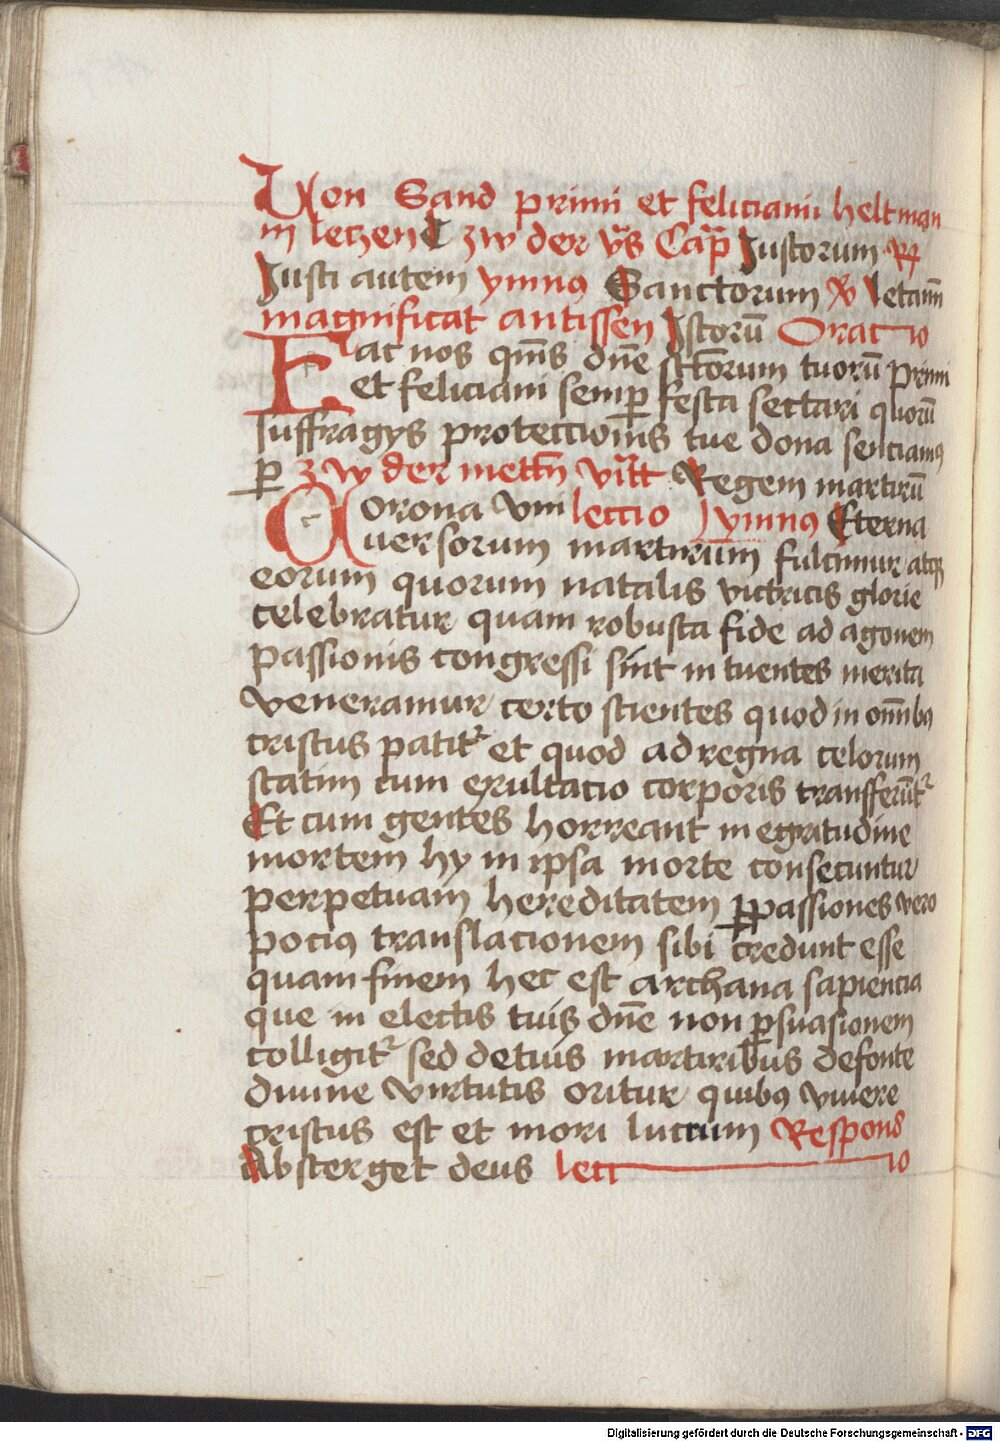 Von Sand primi et feliciani helt man
in letzen zw der v̄s Cap̄ Justorum ℟
Justi autem ymnus Sanctorum ℣ letamī
magnificat antissen Istorū Oracio
Fac nos qm̄s dn̄e sctōrum tuorū primi
et feliciani semp festa sectari quorū
suffragys protectionis tue dona senciamꝰ
p zw der mettn̄ vitt Regem martirū
Corona vm lectio ymnus Eterna
Uersorum martirum fulcimur atqꝫ
eorum quorum natalis victricis glorie
celebratur quam robusta fide ad agonem
passionis congressi sint in tuentes merita
veneramur certo scientes quod in om̄ibꝰ
cristus patitᷣ et quod ad regna celorum
statim cum exultacio corporis transferūtᷣ
Et cum gentes horreant in egritudine
mortem hy in ipsa morte consecuntur
perpetuam hereditatem ꝑpassiones vero
pociꝰ translacionem sibi credunt esse
quam finem hec est archana sapiencia
que in electis tuis dn̄e non ꝑsuasionem
colligitᷣ sed de tuis martiribus de fonte
diuine virtutis oritur quibꝰ viuere
cristus est et mori lucrum Respons
Absterget deus lectio
Digitalisierung gefördert durch die Deutsche Forschungsgemeinschaft - DFG